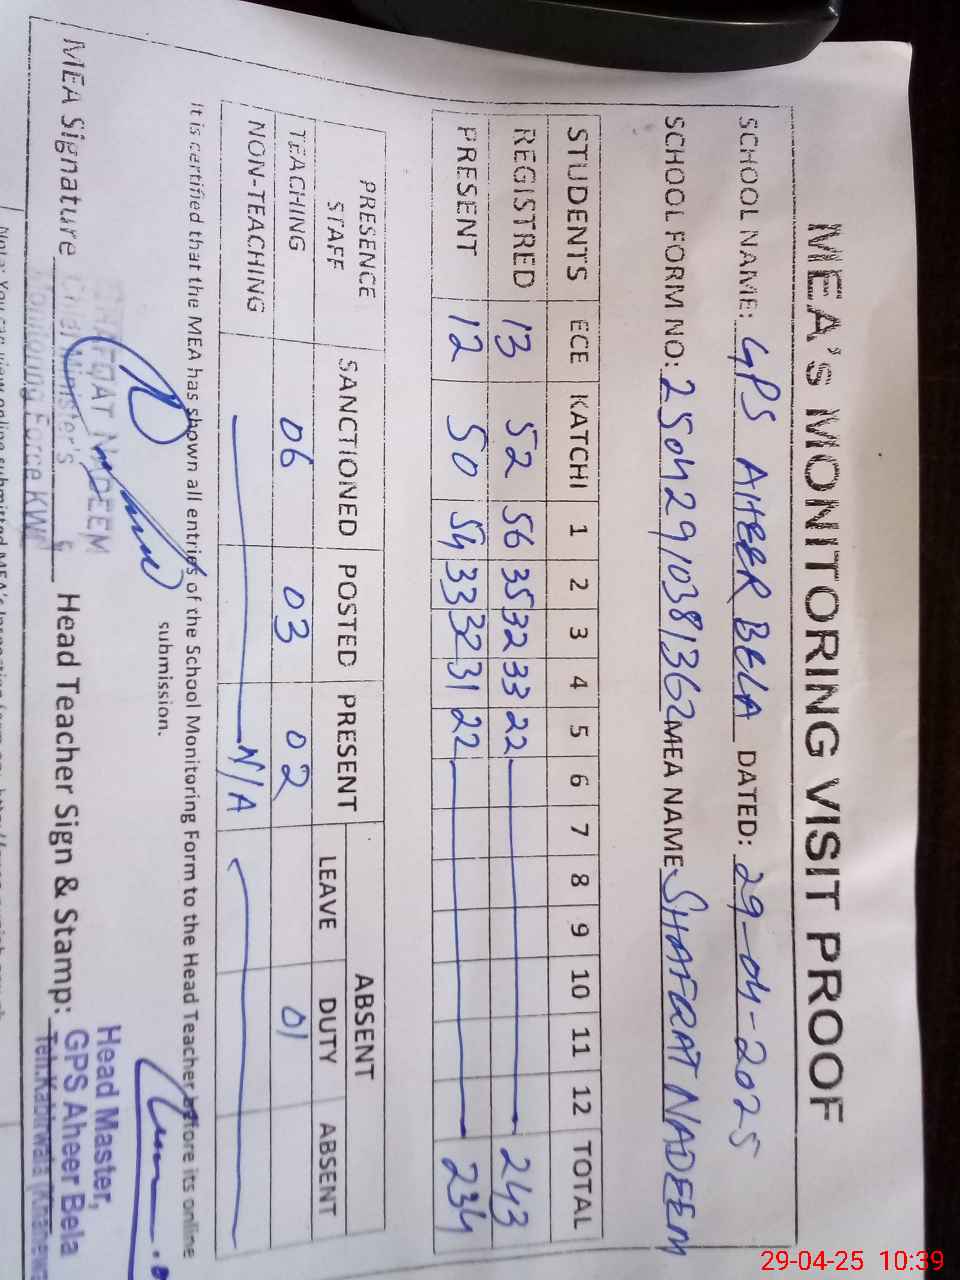 MEA's MONITORING VISIT PROOF
SCHOOL NAME: GPS AHEER BELA DATED: 29-04-2025
SCHOOL FORM NO: 25042910381362 MEA NAME SHAFQAT NADEEM
STUDENTS ECE KATCHI 1 2 3 4 5 6 7 8 9 10 11 12 TOTAL
REGISTRED 13 52 56 35 32 33 22 243
PRESENT 12 50 54 33 32 31 22 234
PRESENCE STAFF SANCTIONED POSTED PRESENT ABSENT
LEAVE DUTY ABSENT
TEACHING 06 03 02 01
NON-TEACHING N/A
It is certified that the MEA has shown all entries of the School Monitoring Form to the Head Teacher before its online
submission.
SHAFQAT NADEEM
Chief Minister's
Monitoring Force KWL
MEA Signature Head Teacher Sign & Stamp:
Head Master,
GPS Aheer Bela
Teh.Kabirwala
Note: You can view online submitted MEA's
29-04-25 10:39